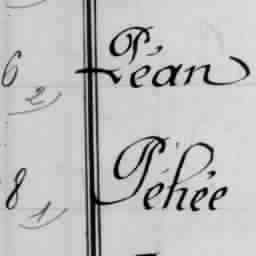 6 2 Péan
8 1 Péhée